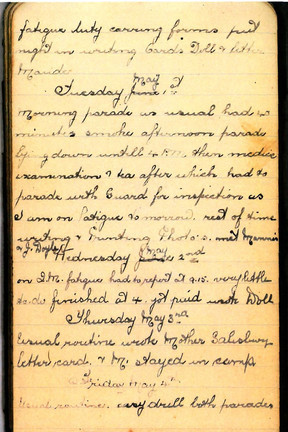 fatigue duty carring forms put
night in writing Cards Doll & letter
Maude
Tuesday June May 1st
Morning parade us usual had 40
minutes smoke afternoon parade
lying down untill 4 P.M. then medic
examination & tea after which had to
parade with Guard for inspection as
I am on Fatigue to-morrow. rest of time
writing & Printing Photo's. met Mannie
& J. Doyle
Wednesday June May 2nd
on Q.M. fatigue had to report at 9.15. very little
to-do finished at 4, got paid wrote Doll
Thursday May 3rd
Usual routine wrote Mother Salisbury
letter card, & M. stayed in camp
Friday May 4th
Usual routine. very drill both parades